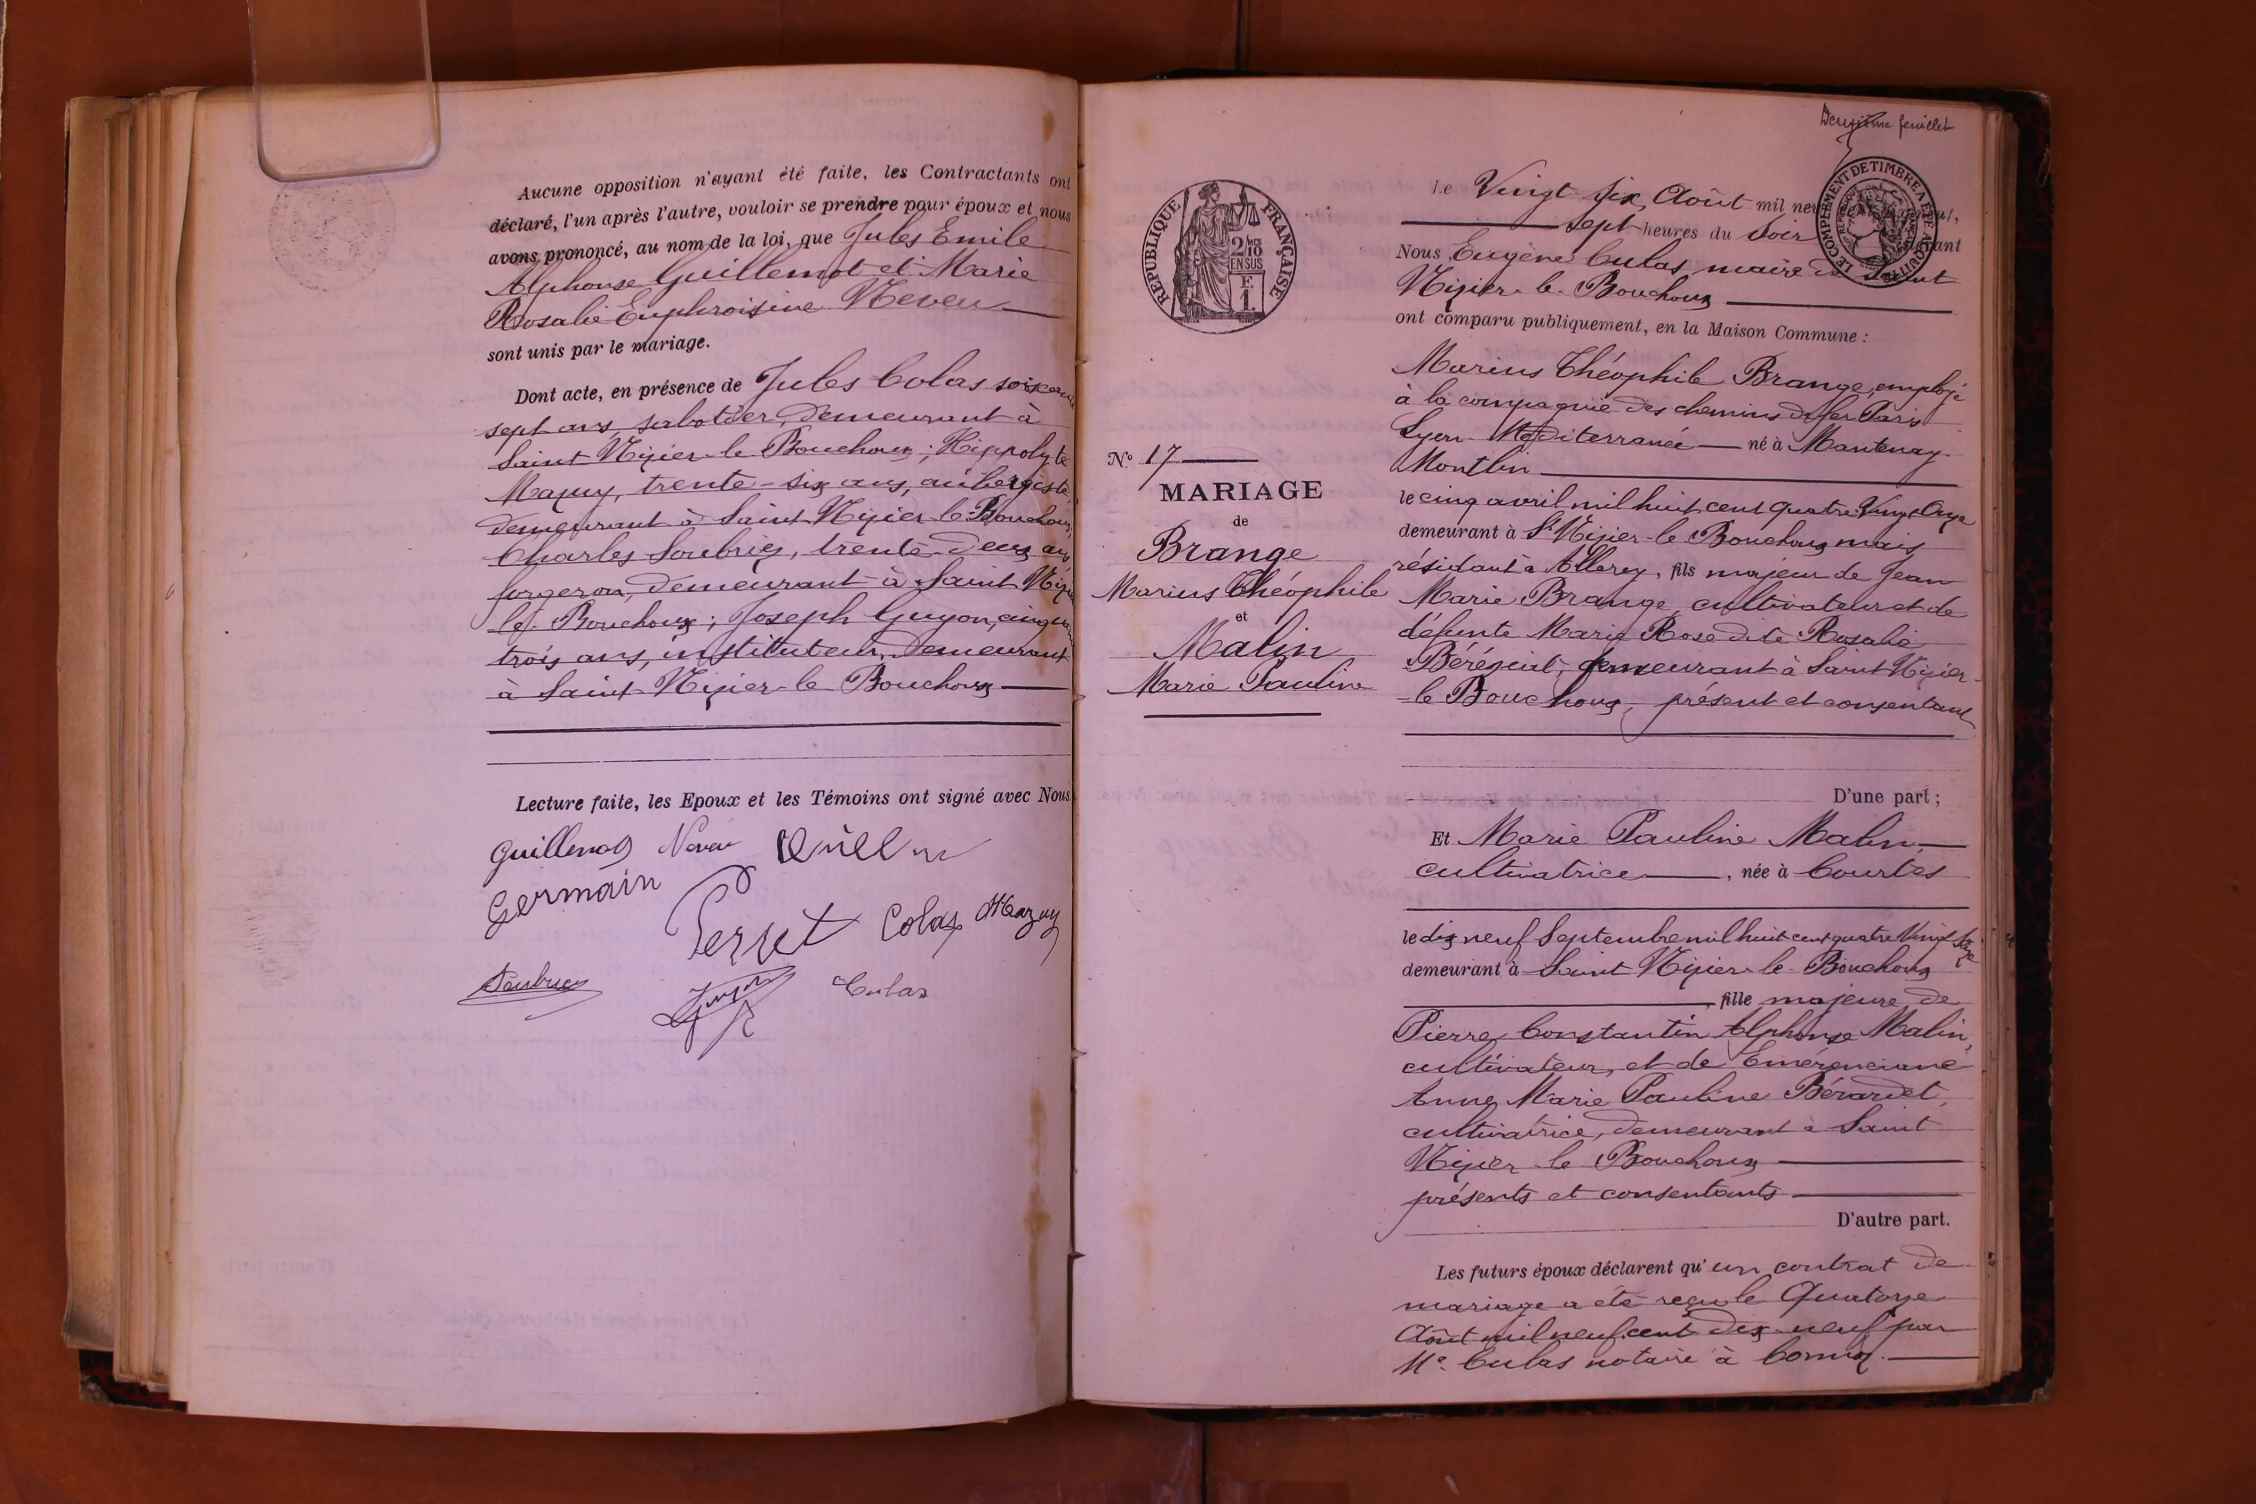 Aucune opposition n'ayant été faite, les Contractants ont
déclaré, l'un après l'autre, vouloir se prendre pour époux et nous
avons prononcé, au nom de la loi, que Jules Emile
Alphonse Guillemot et Marie
Rosalie Euphroisine Neveu
sont unis par le mariage.
Dont acte, en présence de Jules Colas
sept ans, sabotier, demeurant à
Saint Nizier-le Bouchoux; Hippolyte
Mazuy, trente-six ans, aubergiste,
demeurant à Saint Nizier-le-Bouchoux,
Charles Soubriez, trente-deux ans
forgeron, demeurant à Saint
le Bouchoux; Joseph Guyon,
trois ans, instituteur, demeurant
à Saint-Nizier-le Bouchoux
Lecture faite, les Epoux et les Témoins ont signé avec Nous
Guillemot
Germain Perret Colas Mazuy
Culas
Deuxième feuillet
Le Vingt Six, Août mil
sept heures du Soir
Nous Eugène Culas, maire de
Nizier-le-Bouchoux
ont comparu publiquement, en la Maison Commune :
Marius Théophile Brange, employé
à la compagnie des chemins de fer Paris
Lyon Méditerranée né à Mantenay-
Montlin
le cinq avril mil huit cent quatre Vingt Onze
demeurant à St Nizier-le Bouchoux mais
résidant à Allerey, fils majeur de Jean
Marie Brange, cultivateur et de
défunte Marie Rose dite Rosalie
demeurant à Saint Nizier-
le Bouchoux, présent et consentant
D'une part ;
Et Marie Pauline Malin,
cultivatrice , née à Courtes
le dix neuf Septembre mil huit cent quatre Vingt
demeurant à Saint Nizier-le-Bouchoux
, fille majeure de
Pierre Constantin Alphonse Malin,
cultivateur, et de Emérenciane
Anne Marie Pauline Bérardet,
cultivatrice, demeurant à Saint
Nizier-le Bouchoux
présents et consentants
D'autre part.
Les futurs époux déclarent qu'un contrat de
mariage a été reçu le Quatorze
Août mil neuf cent dix-neuf par
Me Culas notaire à Cormoz.
No 17
MARIAGE
de
Brange
Marius Théophile
et
Malin
Marie Pauline
REPUBLIQUE FRANÇAISE
2/10 EN SUS
F. 1.